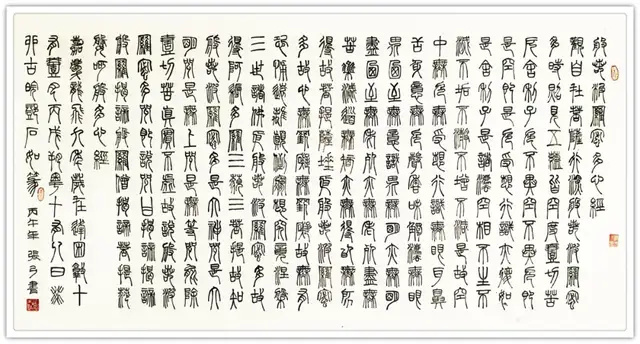 般若波羅蜜多心經
觀自在菩薩行深般若波羅蜜
多時照見五蘊皆空度一切苦
厄舍利子色不異空空不異色色即
是空空即是色受想行識亦復如
是舍利子是諸法空相不生不
滅不垢不淨不增不減是故空
中無色無受想行識無眼耳鼻
舌身意無色聲香味觸法無眼
界乃至無意識界無無明亦無無明
盡乃至無老死亦無老死盡無
苦集滅道無智亦無得以無所
得故菩提薩埵依般若波羅蜜
多故心無罣礙無罣礙故無有
恐怖遠離顛倒夢想究竟涅槃
三世諸佛依般若波羅蜜多故
得阿耨多羅三藐三菩提故知
般若波羅蜜多是大神咒是大
明咒是無上咒是無等等咒能除
一切苦真實不虛故說般若波
羅蜜多咒即說咒曰揭諦揭諦
般羅揭諦般羅僧揭諦菩提
多心經
嘉慶龍飛九年歲在焉逢困敦十
有壹月丙戌朔粵十有九日
古浣鄧石如篆
丙午年 張弓書